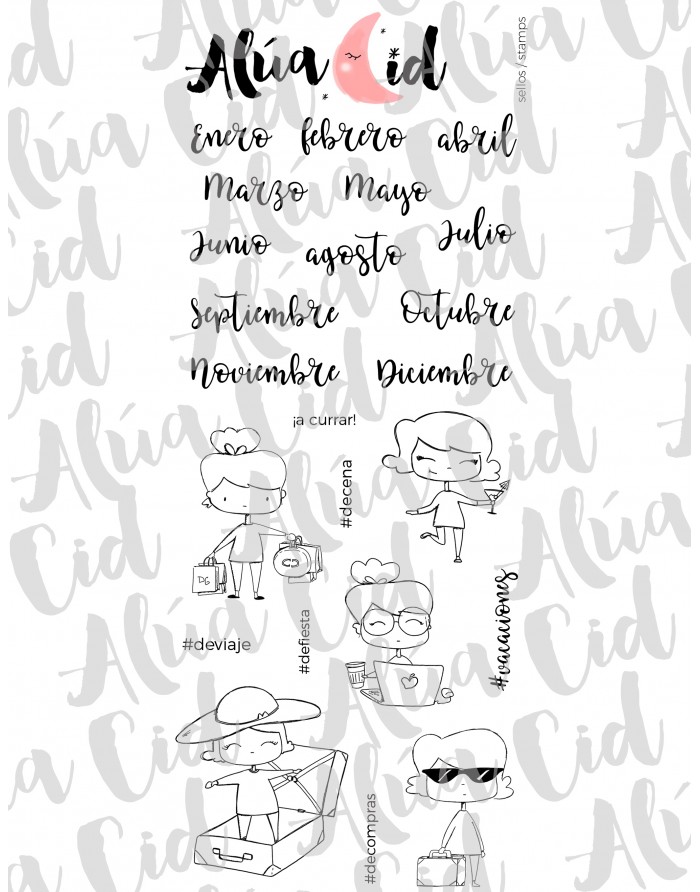 Alúa Cid
sellos / stamps
Enero febrero abril
Marzo Mayo
Junio agosto Julio
Septiembre Octubre
Noviembre Diciembre
¡a currar!
#decena
DG
#vacaciones
#defiesta
#deviaje
#decompras